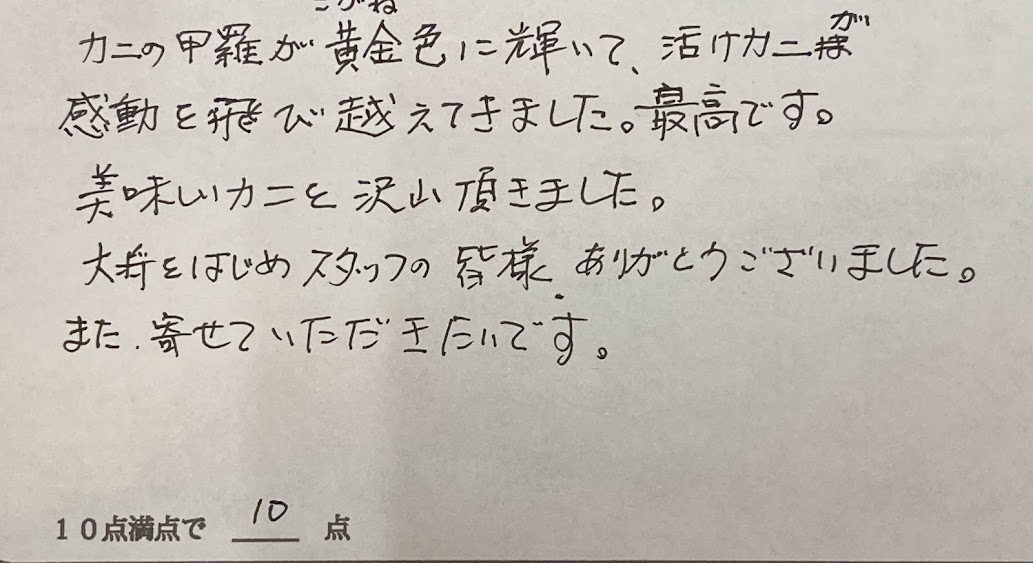 こがね
カニの甲羅が黄金色に輝いて、活けカニが
感動を飛び越えてきました。最高です。
美味しいカニを沢山頂きました。
大将をはじめスタッフの皆様、ありがとうございました。
また、寄せていただきたいです。
10点満点で 10 点